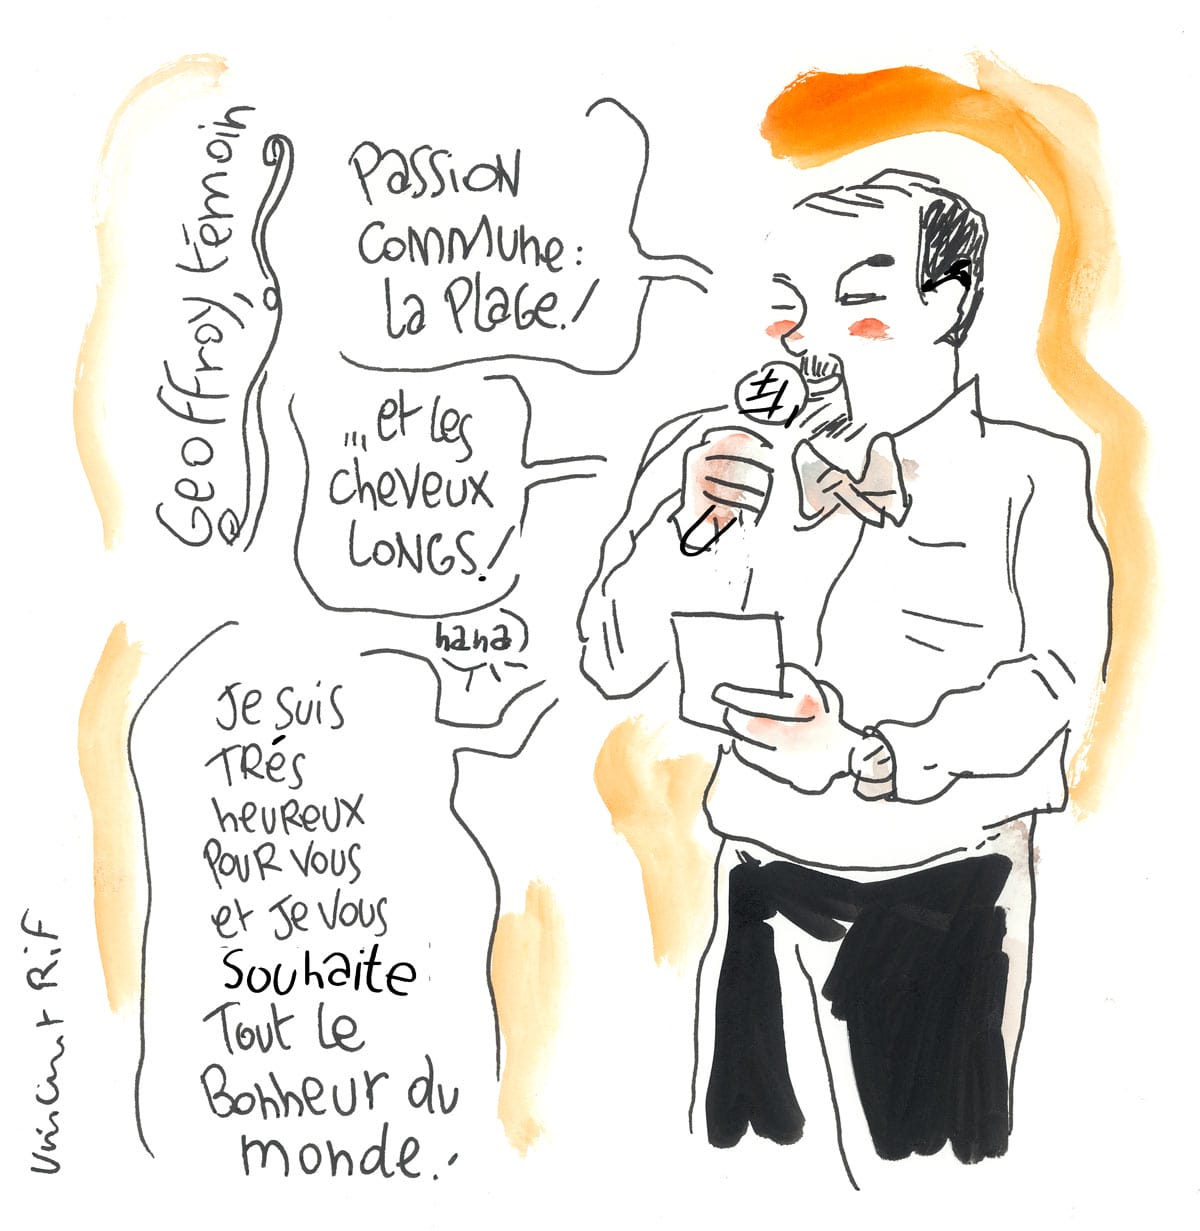 Geoffroy, témoin
Passion
commune :
la plage !
... et les
cheveux
longs !
haha)
Je suis
trés
heureux
pour vous
et je vous
souhaite
tout le
bonheur du
monde.
Vincent R.i.F